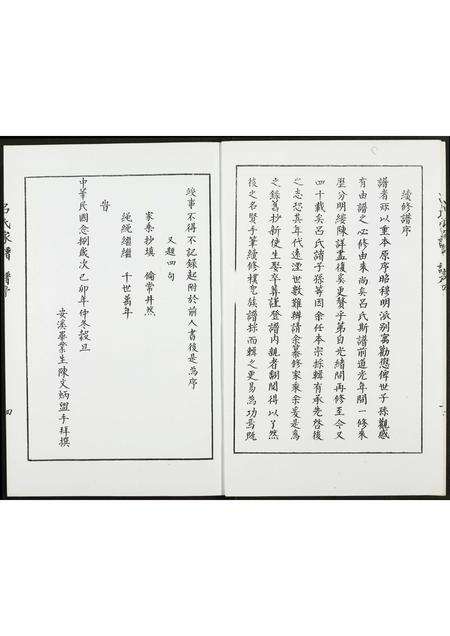 續修譜序
譜者所以重本原序昭穆明派別寓勸懲俾世子孫觀感
有由譜之必修由來尚矣呂氏斯譜前道光年間一修來
歷分明緩陳詳盡後矣更贊乎弟自光緒間再修至今又
四十載矣呂氏諸子孫等因余任本宗採輯有承先啓後
之志恐其年代遠湮世數難辨請余纂修家乘余爰是為
之錄舊抄新使生娶卒葬謹登譜內親者翻閱得以了然
後之名賢手筆續修模範族譜採而輯之是易為功焉既
竣事不得不記錄起附於前人書後是為序
又題四句
家乘抄填 倫常井然
繩繩繼繼 千世萬年
告
中華民國念捌歲次己卯年仲冬穀旦
安溪畢業生陳文炳盥手拜撰
呂氏家譜 譜序
四